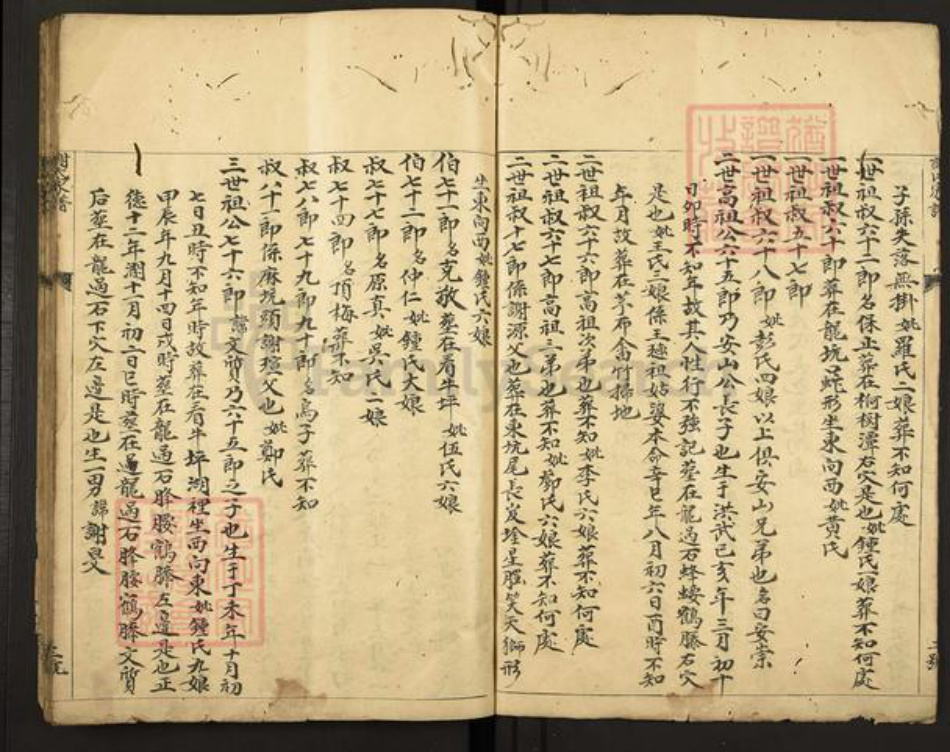 子孫失落無掛 妣羅氏二娘葬不知何處
一世祖叔六十二郎名保止葬在柯樹潭右穴是也妣鍾氏一娘葬不知何處
一世祖叔六十郎葬在龍坑形生東向西妣黃氏
一世祖叔五十七郎
一世祖叔六十八郎妣彭氏四娘以上俱安山兄弟也名曰安崇
二世高祖公六十五郎乃安山公長子也生于洪武己亥年三月初十
日卯時不知年故其人性行不強記葬在龍過石蜂腰鶴膝右穴
是也妣王氏三娘係王逊祖姑婆本命辛巳年八月初六日酉時不知
年月故葬在茅布畲竹掃地
二世祖叔六十六郎高祖次弟也葬不知妣李氏六娘葬不知何處
二世祖叔六十七郎高祖三弟也葬不知妣鄭氏六娘葬不知何處
二世祖叔十七郎係謝源父也葬在東坑尾長岌墙星腥笑天獅形
生東向西妣鍾氏六娘
伯七十一郎名克敬葬在看牛坪 妣伍氏六娘
伯七十二郎名仲仁妣鍾氏大娘
叔七十七郎名原真妣吳氏二娘
叔七十四郎名頂梅葬不知
叔七十八郎七十九郎九十郎名高子葬不知
叔八十一郎係麻坑頭謝瑄父也妣鄭氏
三世祖公七十六郎諱文質乃六十五郎之子也生于丁未年十月初
七日丑時不知年時故葬在看牛坪湖裡坐西向東妣鍾氏九娘
甲辰年九月十四日戌時葬在龍過石蜂腰鶴膝左邊是也正
德十二年潤十二月初二日巳時葬在過龍過石蜂腰鶴膝文質
后葬在龍過石下穴左邊是也生一男諱謝旻
FamilySearch